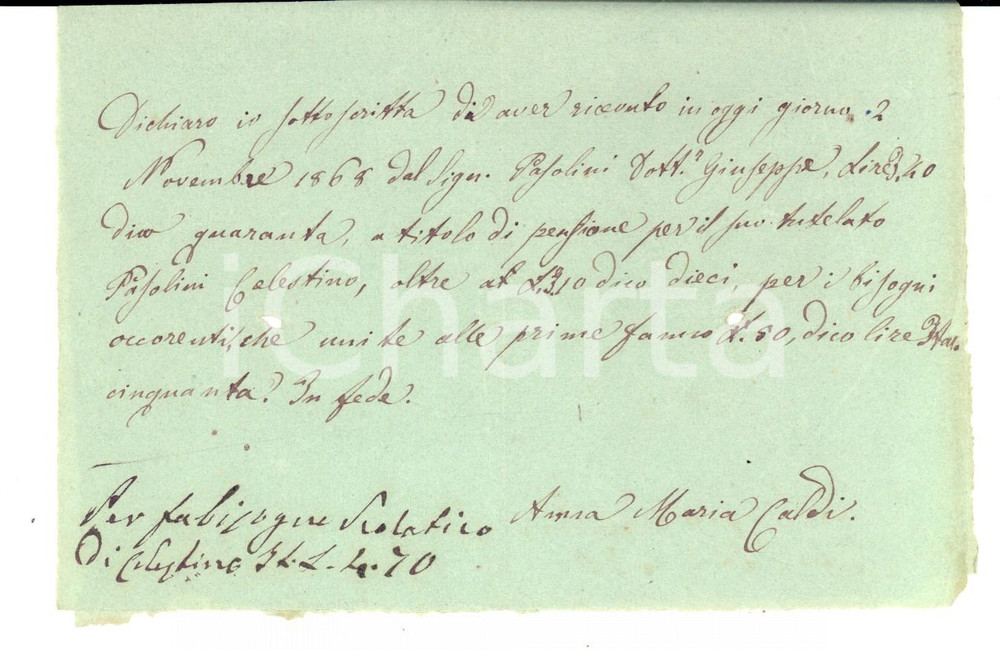 Dichiaro io sottoscritta di aver riceuto in oggi giorno 2
Novembre 1868 dal Sign. Pasolini Dott.r Giuseppe, Lire 40
dico quaranta, a titolo di pensione per il suo tutelato
Pasolini Celestino, oltre a 10 dico dieci, per i bisogni
occorenti, che unite alle prime fanno £. 50, dico lire Ital.
cinquanta. In fede.
Anna Maria Caldi.
Per fabisogne Scolatico
Di Celestino It. L. 4.70
iCharta